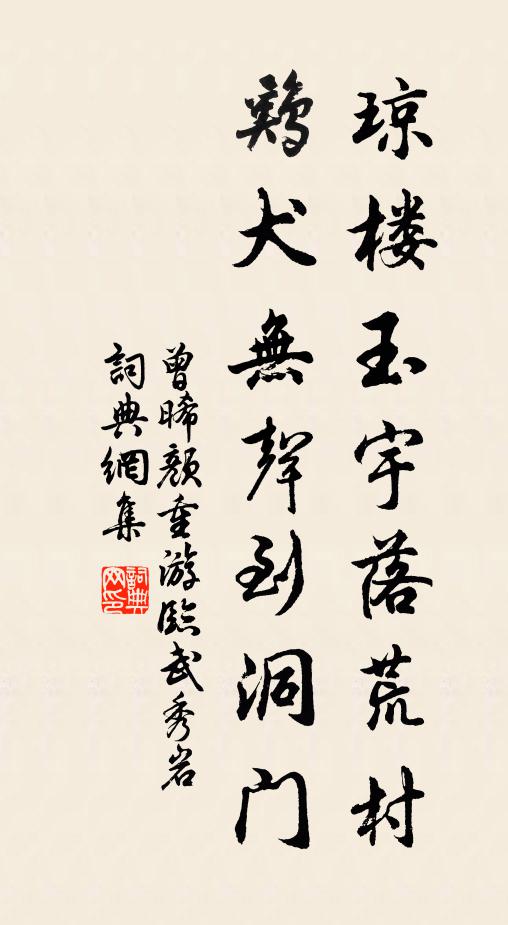 琼楼玉宇落荒村
鷄犬無聲到洞门
曾晞颜重游臨武秀岩
詞典網集
詞典網印